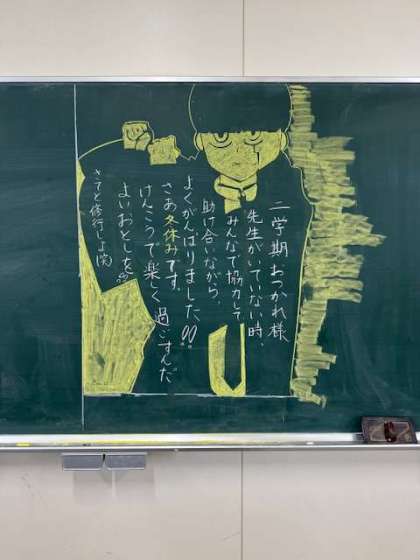 二学期おつかれ様
先生がいていない時、
みんなで協力して
助け合いながら、
よくがんばりました!!
さあ冬休みです。
けんこうで楽しく過ごすんだ
よいおとしを
さてと修行しよ